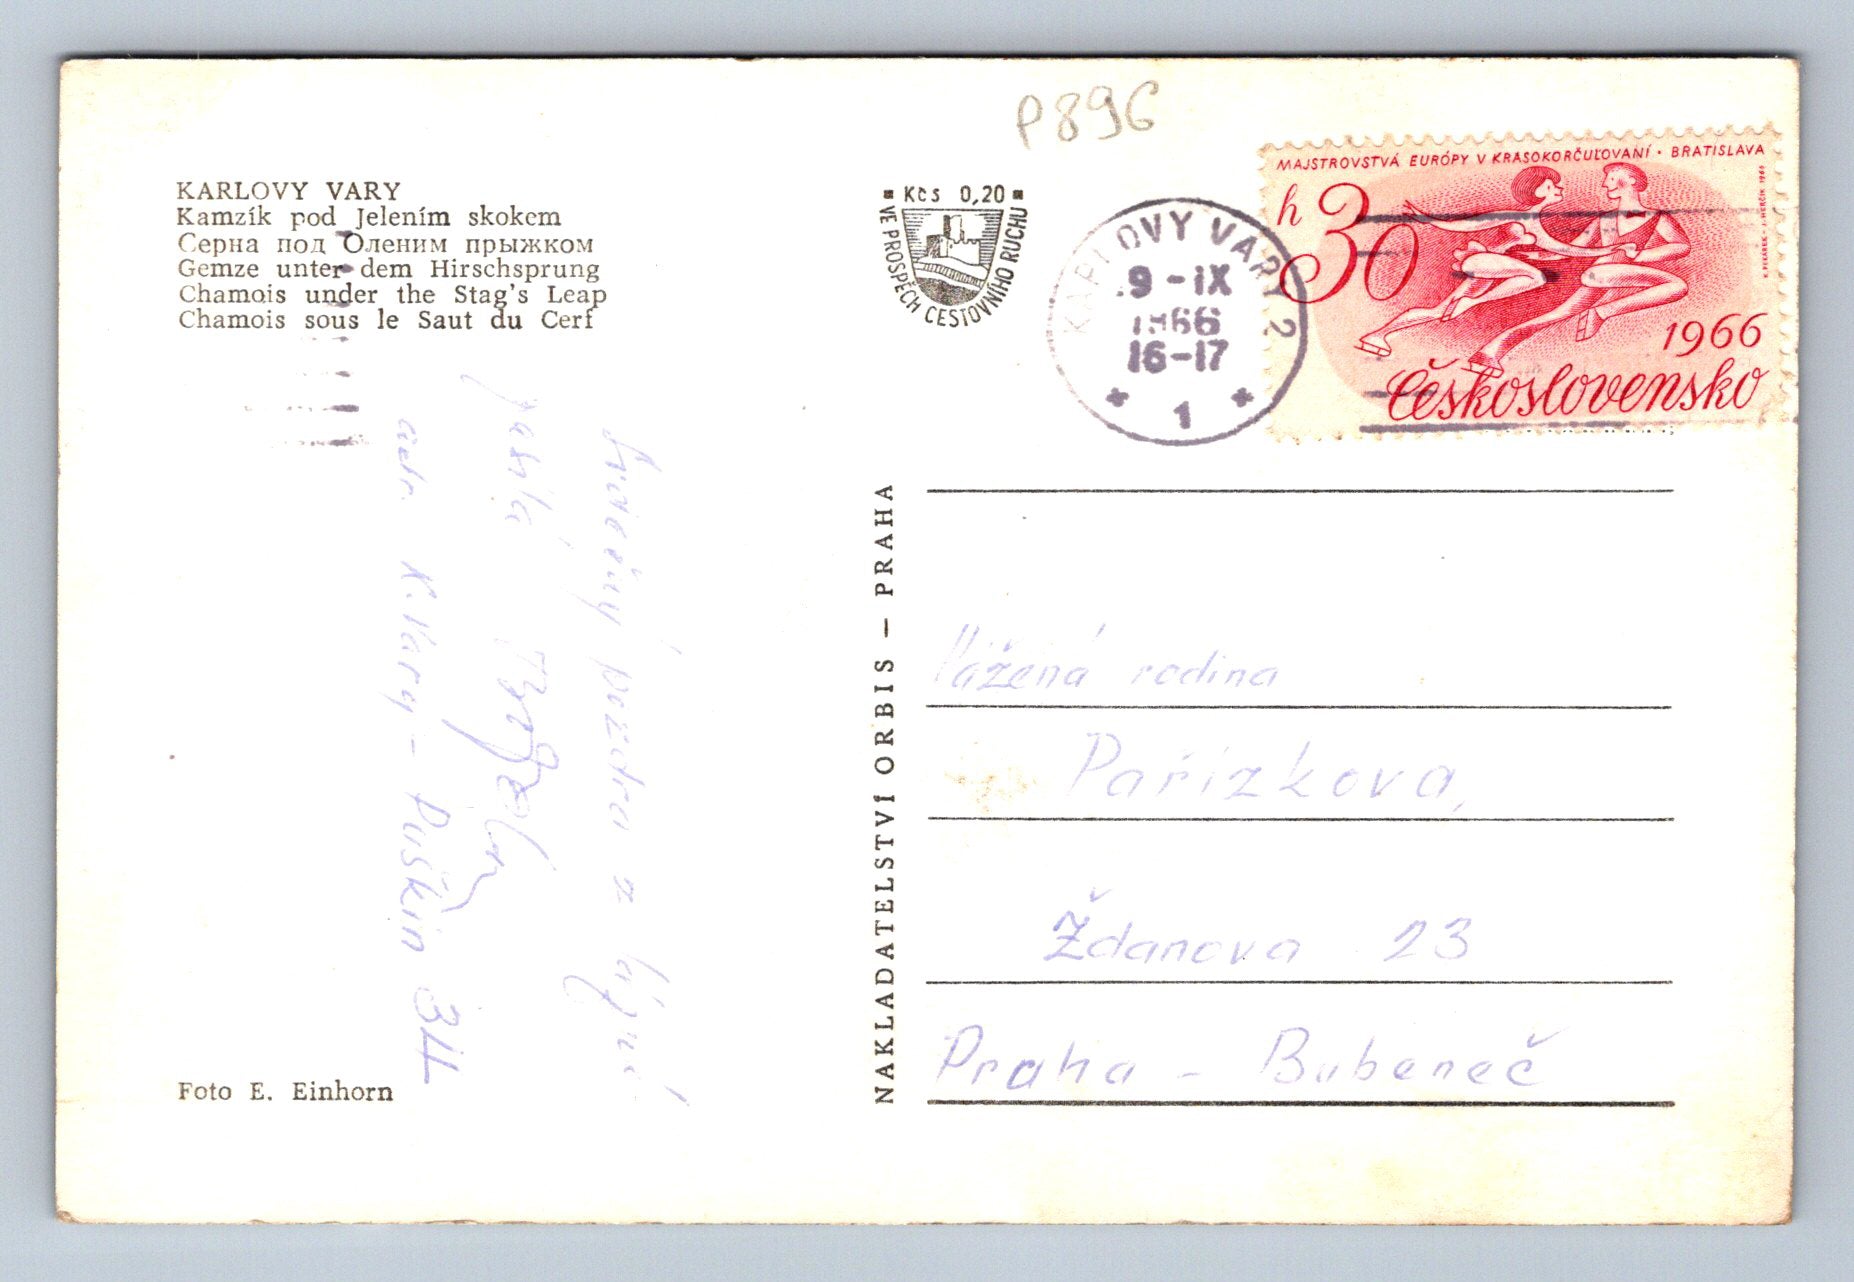 P896
KARLOVY VARY
Kamzík pod Jelením skokem
Серна под Оленим прыжком
Gemze unter dem Hirschsprung
Chamois under the Stag's Leap
Chamois sous le Saut du Cerf
Kčs 0,20
VE PROSPĚCH CESTOVNÍHO RUCHU
KARLOVY VARY 2
9-IX
1966
16-17
1
MAJSTROVSTVÁ EURÓPY V KRASOKORČUĽOVANÍ · BRATISLAVA
h 30
1966
Československo
Srdečný pozdrav z lázní
adr. K. Vary - Puškin 34
Foto E. Einhorn
NAKLADATELSTVÍ ORBIS – PRAHA
Vážená rodina
Pařízkova,
Ždanova 23
Praha - Bubeneč